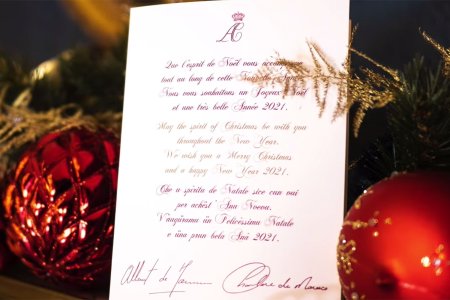 AC
Que l'esprit de Noël vous accompagne
tout au long de cette Nouvelle Année
Nous vous souhaitons un Joyeux Noël
et une très belle Année 2021.
May the spirit of Christmas be with you
throughout the New Year.
We wish you a Merry Christmas
and a happy New Year 2021.
Che u spiritu de Natale sice cun voi
per achëst' Anu Noevu.
V'auguramu ün Felicissimu Natale
e üna prun bela Anà 2021.
Albert de
Charlène de Monaco